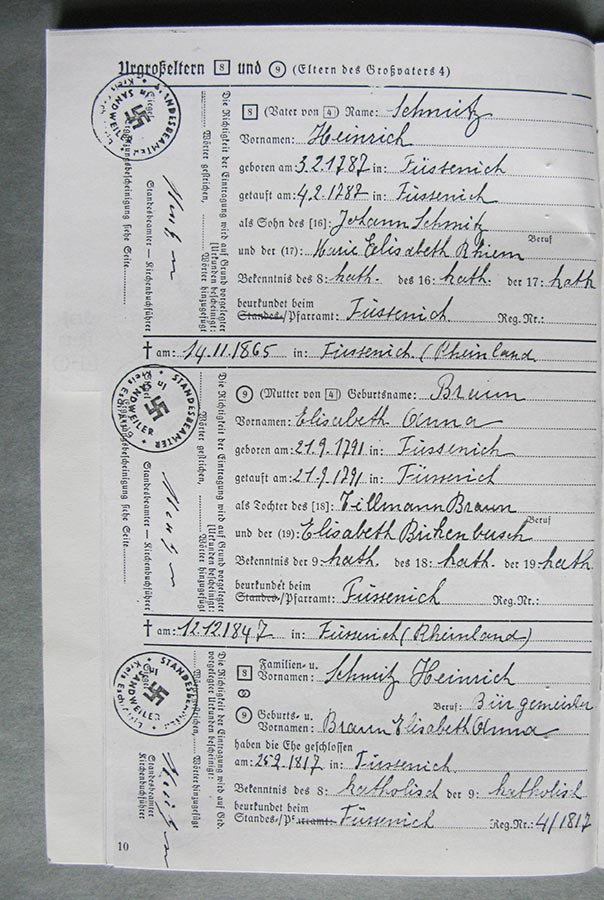 Urgroßeltern 8 und 9 (Eltern des Großvaters 4)
8 (Vater von 4) Name: Schmitz
Vornamen: Heinrich
geboren am: 3.2.1787 in: Füssenich
getauft am: 4.2.1787 in: Füssenich
als Sohn des [16]: Johann Schmitz
Beruf
und der (17): Marie Elisabeth Rhiem
Bekenntnis des 8: kath. des 16: kath. der 17: kath
beurkundet beim
Standes-/Pfarramt: Füssenich Reg.Nr.:
† am: 14.11.1865 in: Füssenich (Rheinland
9 (Mutter von 4) Geburtsname: Braun
Vornamen: Elisabeth Anna
geboren am: 21.9.1791 in: Füssenich
getauft am: 21.9.1791 in: Füssenich
als Tochter des [18]: Tillmann Braun
Beruf
und der (19): Elisabeth Birkenbusch
Bekenntnis der 9: kath. des 18: kath. der 19: kath
beurkundet beim
Standes-/Pfarramt: Füssenich Reg.Nr.:
† am: 12.12.1847 in: Füssenich (Rheinland)
8 Familien- u.
Vornamen: Schmitz Heinrich
Beruf: Bürgemeister
9 Geburts- u.
Vornamen: Braun Elisabeth Anna
haben die Ehe geschlossen
am: 25.2.1817 in: Füssenich
Bekenntnis des 8: katholisch der 9: katholisch
beurkundet beim
Standes-/Pfarramt: Füssenich Reg.Nr.: 4/1817
Die Richtigkeit der Eintragung wird auf Grund vorgelegter
Urkunden bescheinigt:
Wörter gestrichen, Wörter hinzugefügt
Standesbeamter — Kirchenbuchführer
siehe Seite
STANDESBEAMTER
in SANDWEILER
Die Richtigkeit der Eintragung wird auf Grund vorgelegter
Urkunden bescheinigt:
Wörter gestrichen, Wörter hinzugefügt
Standesbeamter — Kirchenbuchführer
siehe Seite
STANDESBEAMTER
in SANDWEILER
Die Richtigkeit der Eintragung wird auf Grd.
vorgelegter Urkunden bescheinigt:
Wörter gestrichen, Wörter hinzugefügt
Standesbeamter
Kirchenbuchführer
STANDESBEAMTER
in SANDWEILER
10